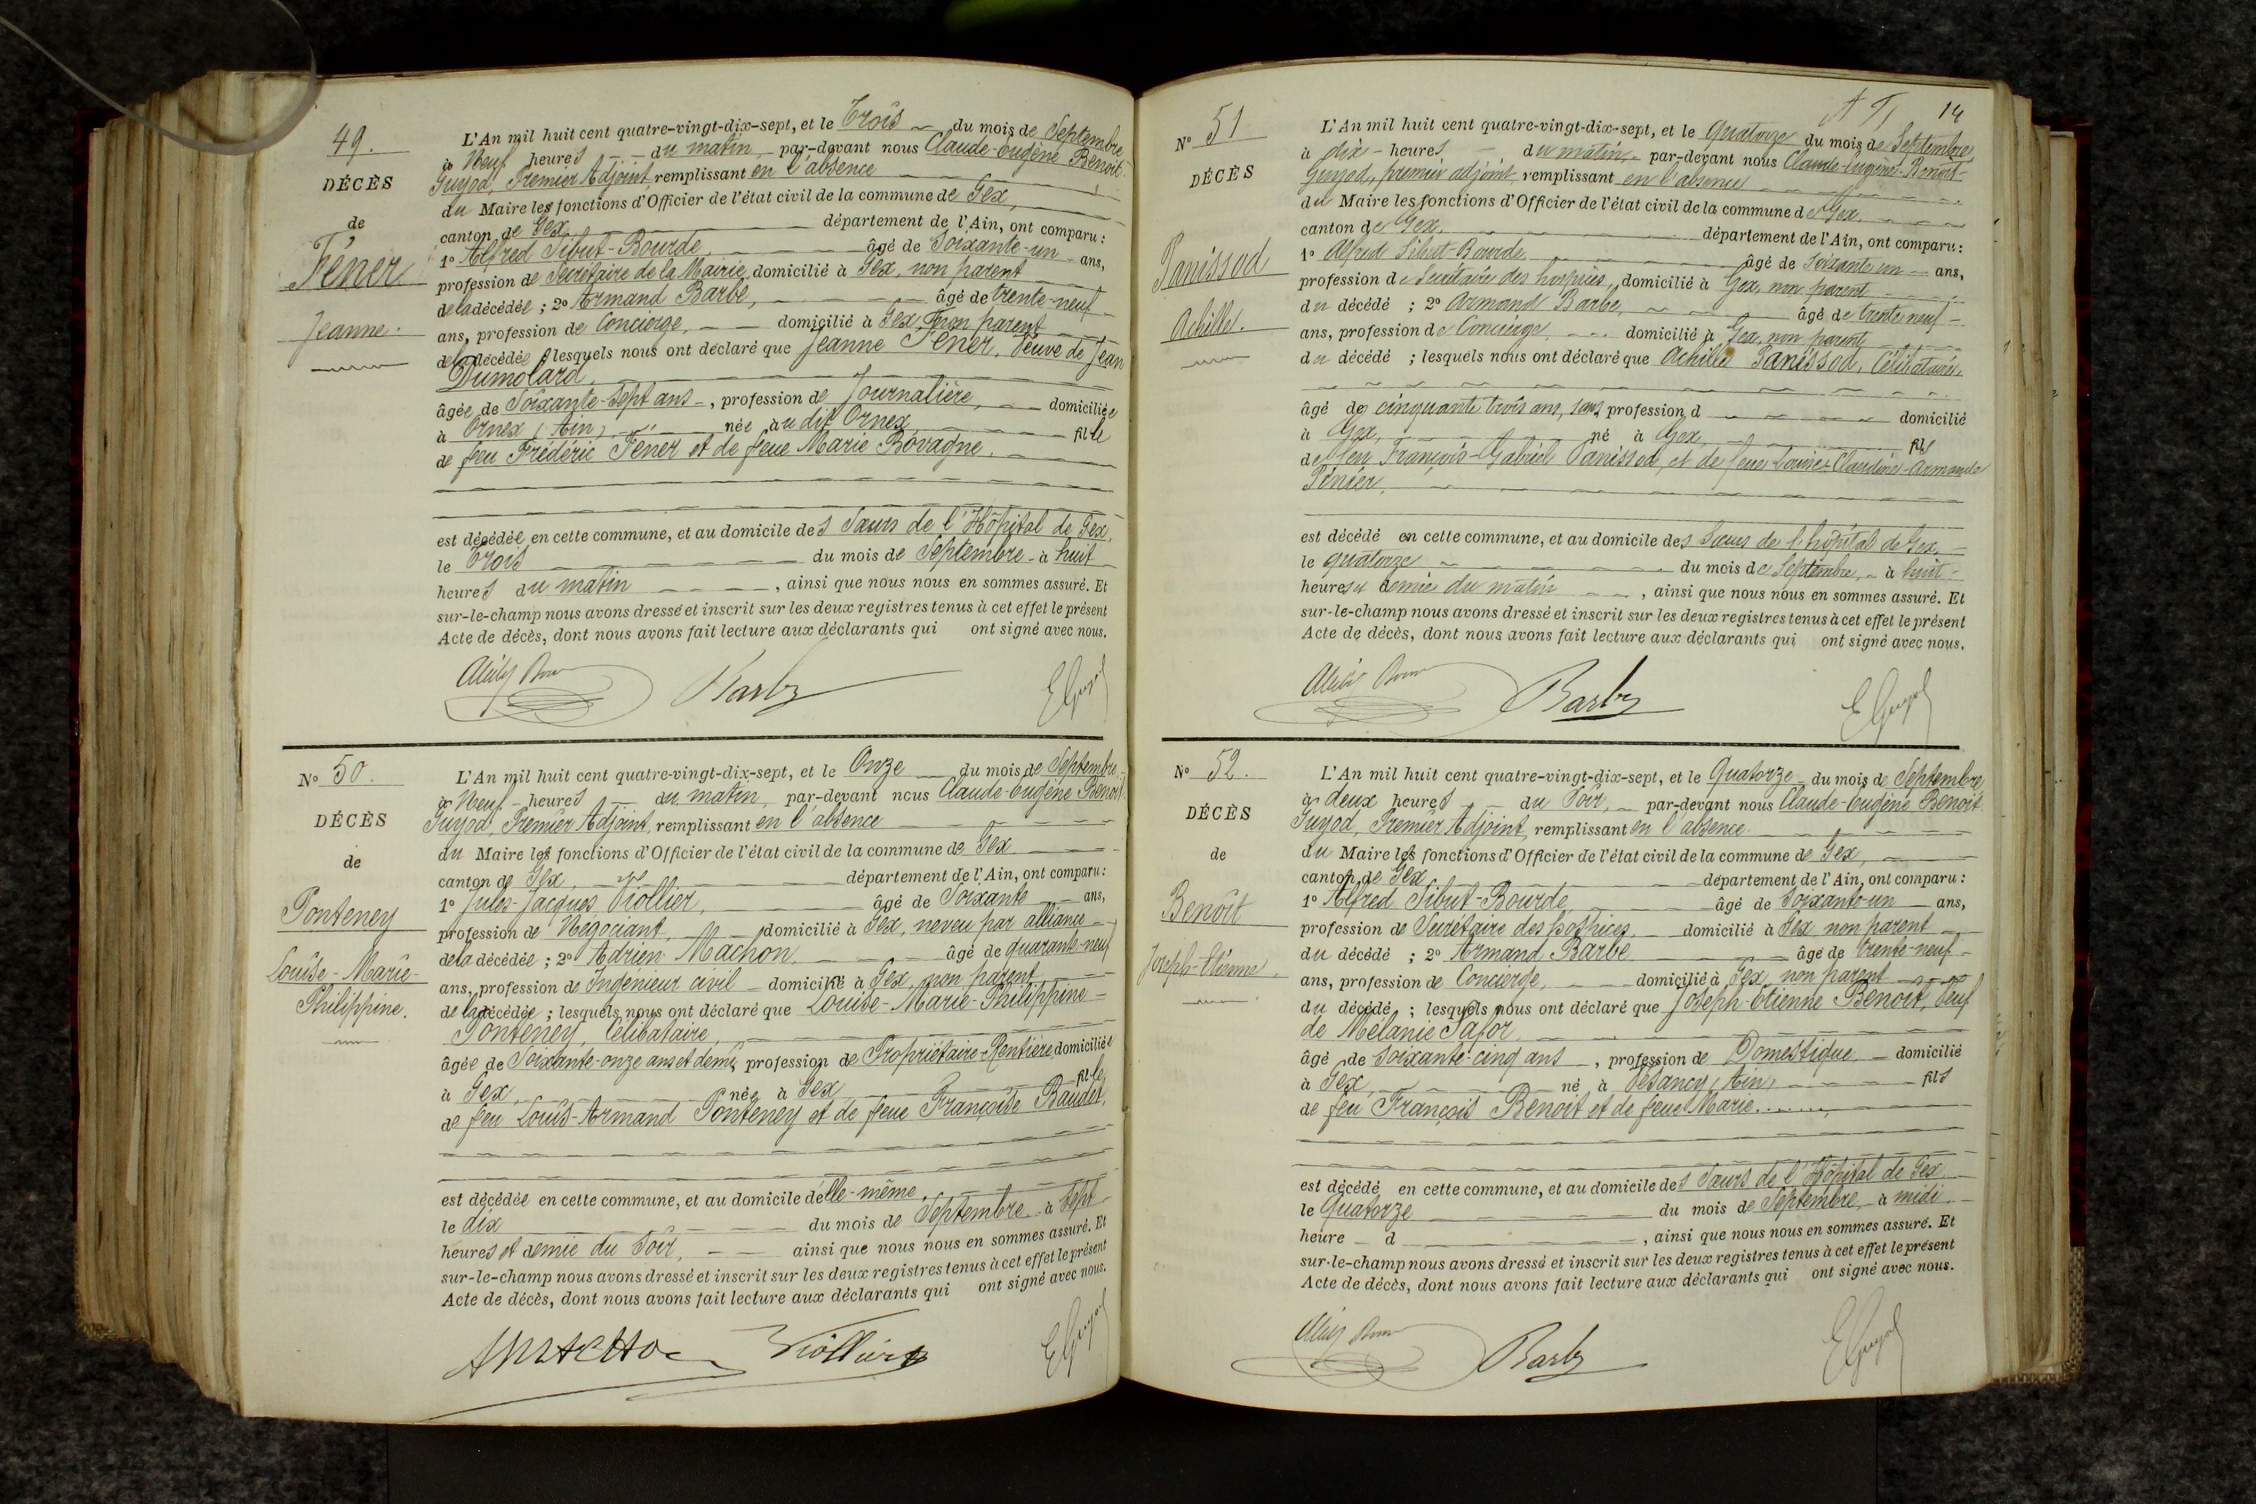 49.
DÉCÈS
de
Féner
Jeanne.
L'An mil huit cent quatre-vingt-dix-sept, et le Trois du mois de Septembre
à Neuf heures du matin par-devant nous Claude-Eugène Benoit
Guyod, Premier Adjoint, remplissant en l'absence
du Maire les fonctions d'Officier de l'état civil de la commune de Gex,
canton de Gex département de l'Ain, ont comparu :
1º Alfred Sibut-Bourde âgé de Soixante-un ans,
profession de Secrétaire de la Mairie domicilié à Gex, non parent
de la décédée ; 2º Armand Barbe, âgé de trente-neuf
ans, profession de Concierge, domicilié à Gex, non parent
de la décédée ; lesquels nous ont déclaré que Jeanne Féner, Veuve de Jean
Dumolard,
âgée de Soixante-sept ans, profession de Journalière, domiciliée
à Ornex (Ain) née au dit Ornex fille
de feu Frédéric Féner et de feue Marie Bovagne.
est décédée en cette commune, et au domicile des Sœurs de l'Hôpital de Gex,
le Trois du mois de Septembre à huit
heures du matin, ainsi que nous nous en sommes assuré. Et
sur-le-champ nous avons dressé et inscrit sur les deux registres tenus à cet effet le présent
Acte de décès, dont nous avons fait lecture aux déclarants qui ont signé avec nous.
Barbe E Guyod
Nº 50.
DÉCÈS
de
Ponteney
Louise-Marie-
Philippine.
L'An mil huit cent quatre-vingt-dix-sept, et le Onze du mois de Septembre
à Neuf heures du matin, par-devant nous Claude-Eugène Benoit
Guyod, Premier Adjoint, remplissant en l'absence
du Maire les fonctions d'Officier de l'état civil de la commune de Gex
canton de Gex, département de l'Ain, ont comparu :
1º Jules-Jacques Viollier, âgé de Soixante ans,
profession de Négociant, domicilié à Gex, neveu par alliance
de la décédée ; 2º Adrien Machon, âgé de quarante-neuf
ans, profession de Ingénieur civil domicilié à Gex, non parent
de la décédée ; lesquels nous ont déclaré que Louise-Marie-Philippine
Ponteney, Célibataire,
âgée de Soixante-onze ans et demi, profession de Propriétaire-Rentière domiciliée
à Gex, née à Gex fille
de feu Louis-Armand Ponteney et de feue Françoise Baudet,
est décédée en cette commune, et au domicile d'elle-même,
le dix du mois de Septembre à Sept
heures et demie du Soir, ainsi que nous nous en sommes assuré. Et
sur-le-champ nous avons dressé et inscrit sur les deux registres tenus à cet effet le présent
Acte de décès, dont nous avons fait lecture aux déclarants qui ont signé avec nous.
AMachon Viollier E Guyod
14
Nº 51
DÉCÈS
Panissod
Achille.
L'An mil huit cent quatre-vingt-dix-sept, et le Quatorze du mois de Septembre,
à dix heures du matin, par-devant nous Claude-Eugène-Benoit
Guyod, premier adjoint, remplissant en l'absence
du Maire les fonctions d'Officier de l'état civil de la commune de Gex,
canton de Gex, département de l'Ain, ont comparu :
1º Alfred Sibut-Bourde âgé de soixante un ans,
profession de Secrétaire des hospices, domicilié à Gex, non parent
du décédé ; 2º Armand Barbe, âgé de trente neuf
ans, profession de Concierge, domicilié à Gex, non parent
du décédé ; lesquels nous ont déclaré que Achille Panissod, Célibataire,
âgé de cinquante trois ans, sans profession d domicilié
à Gex, né à Gex, fils
de feu François-Gabriel Panissod, et de feue Louise-Claudine-Armande
Pénier,
est décédé en cette commune, et au domicile des Sœurs de l'hôpital de Gex,
le quatorze du mois de Septembre, à huit
heures et demie du matin, ainsi que nous nous en sommes assuré. Et
sur-le-champ nous avons dressé et inscrit sur les deux registres tenus à cet effet le présent
Acte de décès, dont nous avons fait lecture aux déclarants qui ont signé avec nous.
Barbe E Guyod
Nº 52.
DÉCÈS
de
Benoît
Joseph-Etienne.
L'An mil huit cent quatre-vingt-dix-sept, et le Quatorze du mois de Septembre,
à deux heures du Soir, par-devant nous Claude-Eugène Benoit
Guyod, Premier Adjoint, remplissant en l'absence
du Maire les fonctions d'Officier de l'état civil de la commune de Gex,
canton de Gex département de l'Ain, ont comparu :
1º Alfred Sibut-Bourde, âgé de Soixante-un ans,
profession de Secrétaire des hospices domicilié à Gex non parent
du décédé ; 2º Armand Barbe âgé de trente-neuf
ans, profession de Concierge, domicilié à Gex, non parent
du décédé ; lesquels nous ont déclaré que Joseph-Etienne Benoit, Veuf
de Mélanie Safor
âgé de soixante-cinq ans, profession de Domestique domicilié
à Gex, né à Vesancy (Ain) fils
de feu François Benoit et de feue Marie........,
est décédé en cette commune, et au domicile des Sœurs de l'Hôpital de Gex
le Quatorze du mois de Septembre à midi
heure d , ainsi que nous nous en sommes assuré. Et
sur-le-champ nous avons dressé et inscrit sur les deux registres tenus à cet effet le présent
Acte de décès, dont nous avons fait lecture aux déclarants qui ont signé avec nous.
Barbe E Guyod